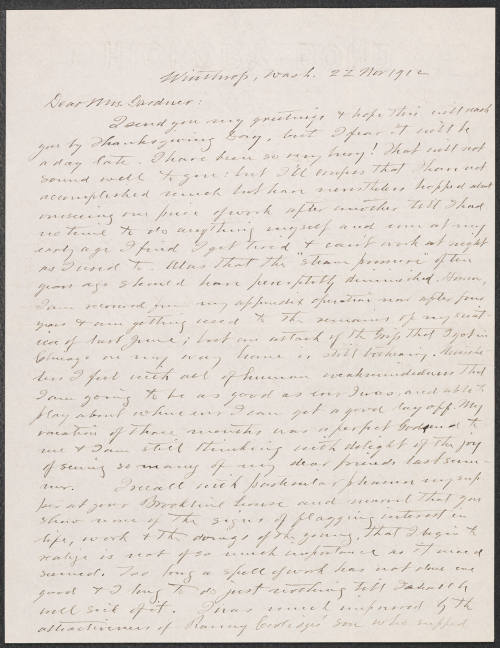 Winthrop, Wash. 22 Nov 1912
Dear Mrs. Gardner:
I send you my greetings & hope this will reach
you by Thanksgiving Day, but I fear it will be
a day late. I have been so very busy! That will not
sound well to you: but I'll confess that I have not
accomplished much but have nevertheless hopped about
overseeing one piece of work after another till I had
no time to do anything myself and even at my
early age I find I get tired & can't work at night
as I used to. Alas that the "steam pressure" of ten
years ago should have perceptibly diminished. However,
I am recovered from my appendix operation now after four
years & am getting used to the remains of my
of last June; but an attack of the Grip that I got in
Chicago on my way home is still bothering. Neverthe-
less I feel with all of human weakmindedness that
I am going to be as good as ever I was, and able to
play about when ever I can get a good lay off. My
vacation of three months was a perfect Godsend to
me & I am still thinking with delight of the joy
of seeing so many of my dear friends last sum-
mer. I recall with particular pleasure my sup-
per at your Brookline house and marvel that you
show none of the signs of flagging interest in
life, work & the doings of the young, that I begin to
realize is not of so much importance as it once
seemed. Too long a spell of work has not done me
good & I long to do just nothing till I shall be
well sick of it. I was much impressed by the
attractiveness of Coolidge's son who supped